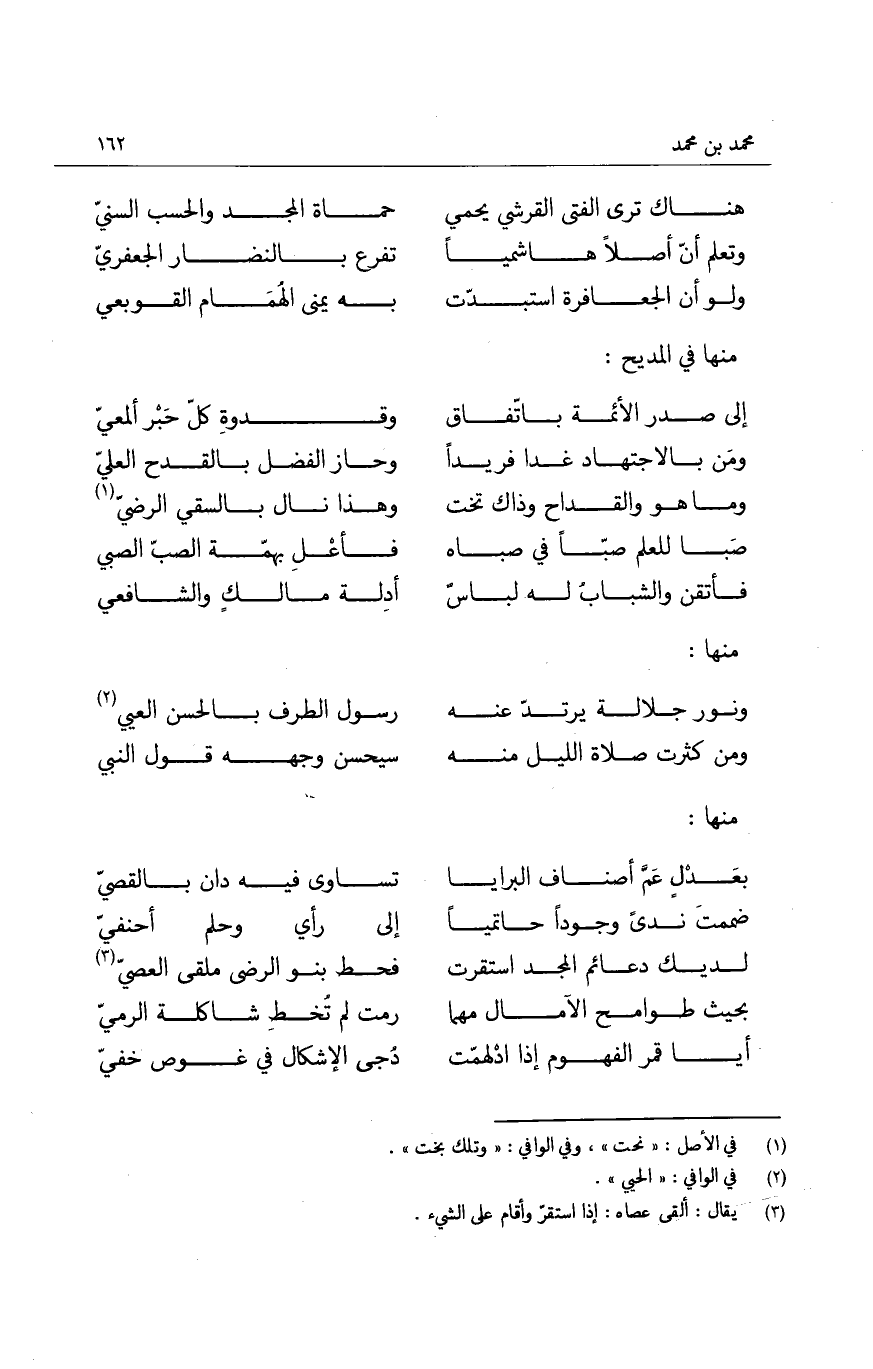 محمد بن محمد ١٦٢
هناك ترى الفتى القرشي يحمي حماة المجد والحسب السنيّ
وتعلم أنّ أصلاً هاشمياً تفرع بالنضار الجعفريّ
ولو أن الجعافرة استبدّت به يمنى الهُمَام القوبعي
منها في المديح :
إلى صدر الأئمة باتّفاق وقدوةِ كلّ حَبْر ألمعيّ
ومَن بالاجتهاد غدا فريداً وحاز الفضل بالقدح العليّ
وما هو والقداح وذاك تخت وهذا نال بالسقي الرضيّ(١)
صَبَا للعلم صبّاً في صباه فأعْلِ بهمّة الصبّ الصبي
فأتقن والشبابُ له لباسٌ أدلة مالكٍ والشافعي
منها :
ونور جلالة يرتدّ عنه رسول الطرف بالحسن العيي(٢)
ومن كثرت صلاة الليل منه سيحسن وجهه قول النبي
منها :
بعَدْلٍ عَمَّ أصناف البرايا تساوى فيه دان بالقصيّ
ضممتَ ندىً وجوداً حاتمياً إلى رأي وحلم أحنفيّ
لديك دعائم المجد استقرت فحط بنو الرضى ملقى العصيّ(٣)
بحيث طوامح الآمال مهما رمت لم تُخطِ شاكلة الرميّ
أيا قمر الفهوم إذا ادْلهمّت دُجى الإشكال في غوص خفيّ
(١) في الأصل : « نحت » ، وفي الوافي : « وتلك بخت » .
(٢) في الوافي : « الحيي » .
(٣) يقال : ألقى عصاه : إذا استقرّ وأقام على الشيء .